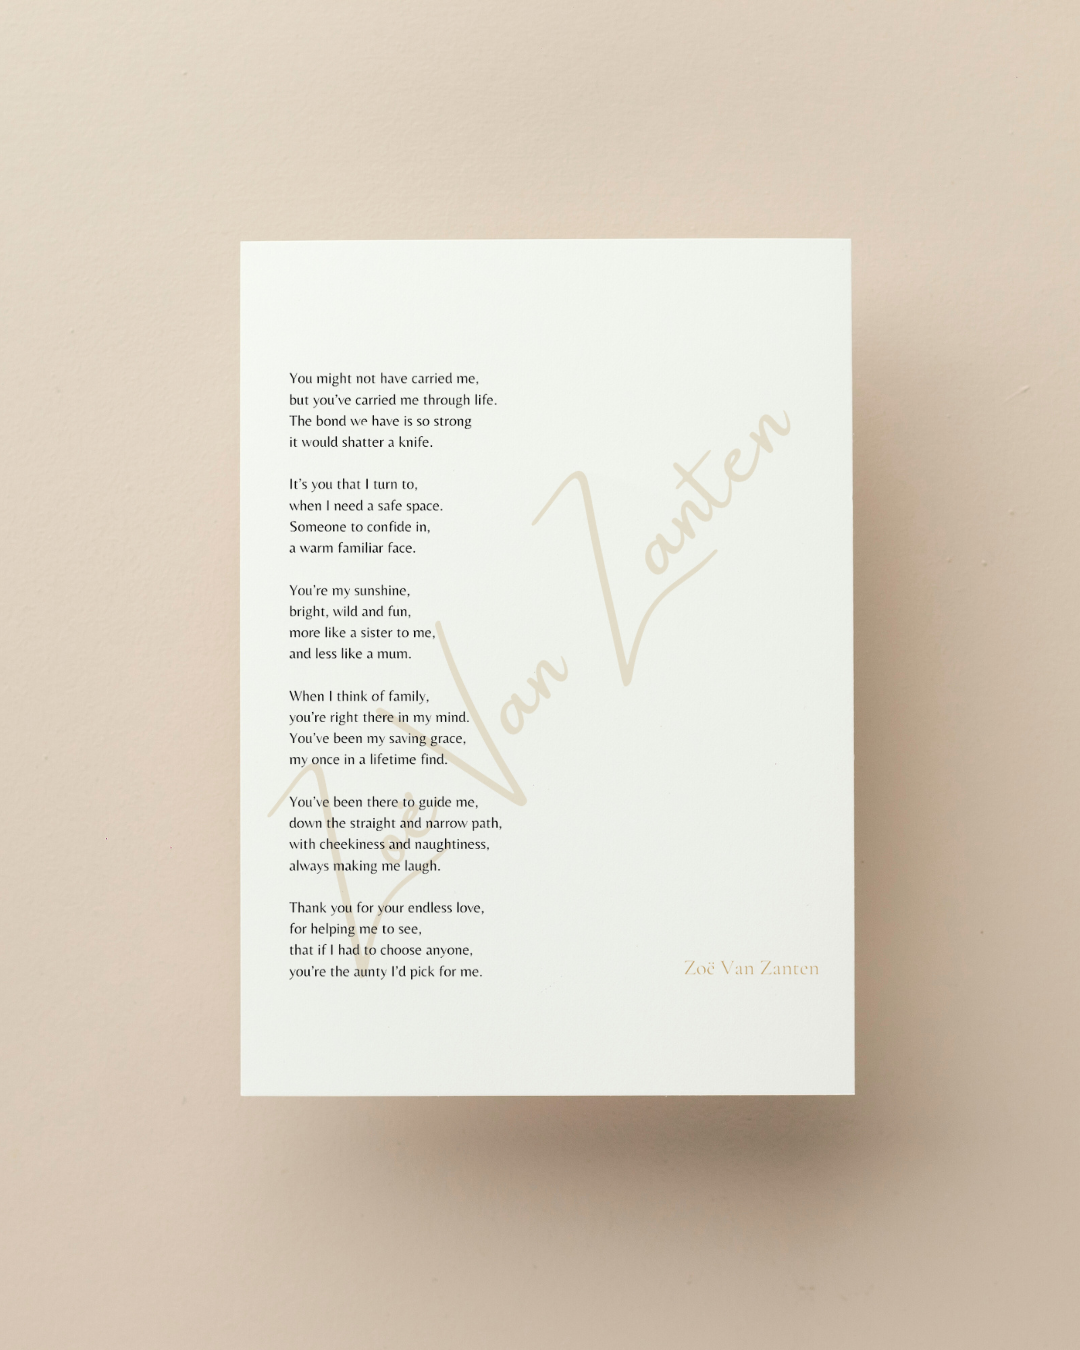 You might not have carried me,
but you've carried me through life.
The bond we have is so strong
it would shatter a knife.

It's you that I turn to,
when I need a safe space.
Someone to confide in,
a warm familiar face.

You're my sunshine,
bright, wild and fun,
more like a sister to me,
and less like a mum.

When I think of family,
you're right there in my mind.
You've been my saving grace,
my once in a lifetime find.

You've been there to guide me,
down the straight and narrow path,
with cheekiness and naughtiness,
always making me laugh.

Thank you for your endless love,
for helping me to see,
that if I had to choose anyone,
you're the aunty I'd pick for me.

Zoë Van Zanten
Zoë Van Zanten